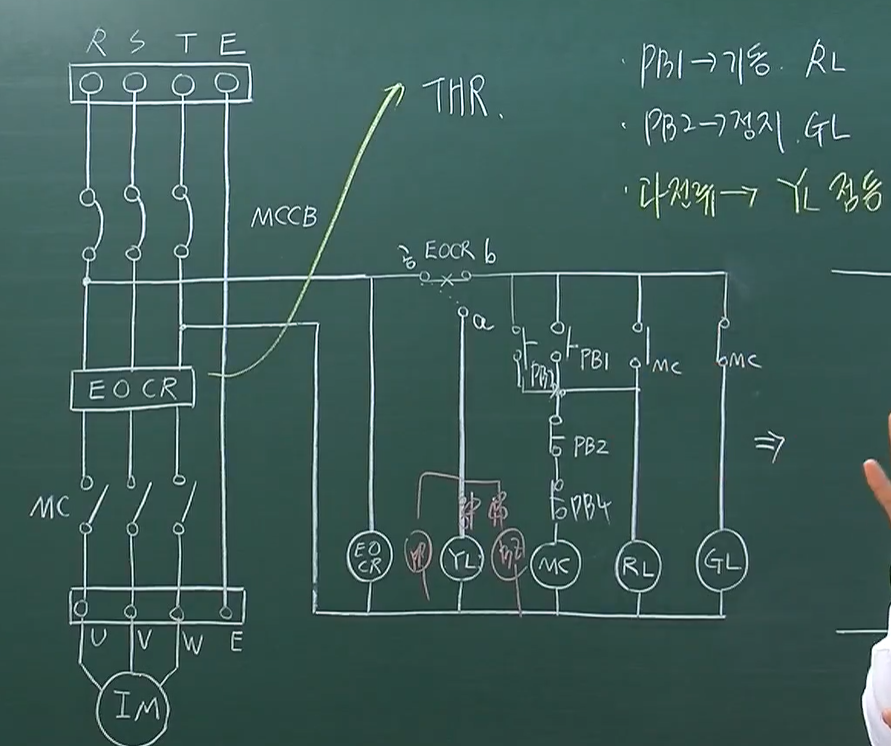 R S T E
THR.
· PB1→기동. RL
· PB2→정지. GL
· 과전류→ YL 점등
MCCB
EOCR b
a
PB3
PB1
MC
MC
EOCR
PB2
⇒
MC
PB4
EO
CR
YL
MC
RL
GL
U V W E
IM